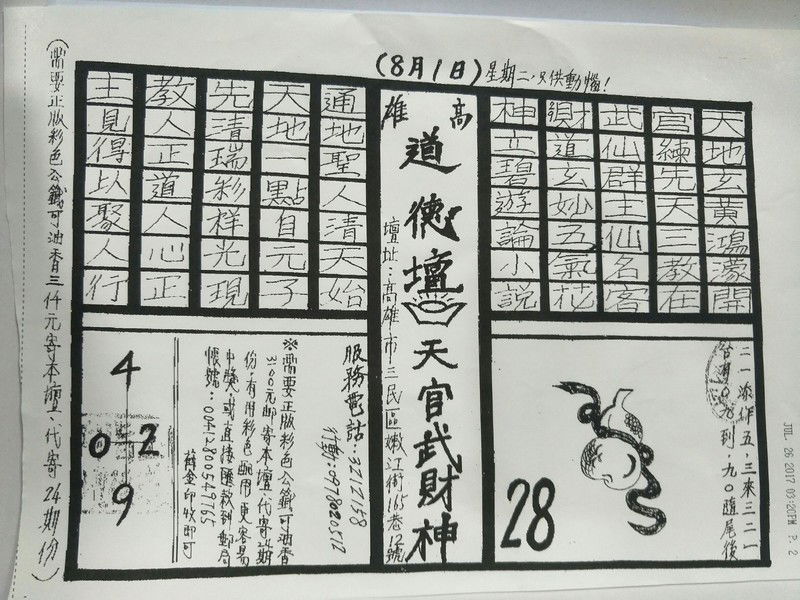 (8月1日)星期二，只供動腦!
天地玄黃鴻濛開
官練先天三教在
武仙群主仙名客
財道玄妙五氣花
神立碧遊論小說
高雄
道德壇
天官武財神
壇址：高雄市三民區嫩江街165巷12號
通地聖人清天始
天地一點自元子
先清瑞彩祥光現
教人正道人心正
主見得以聚人行
二一添作五，三來三二一
九0隨尾後
28
服務電話：3212158
行動：0978020512
※需要正版彩色公籤可油香
3100元郵寄本壇，代寄24期
份，有用彩色
更容易
中獎，或直接匯款到郵局
帳號：
舊金印收即可
4
0 2
9
(需要正版彩色公籤可油香三仟元寄本壇，代寄24期份)
JUL 26 2017 03:20PM P. 2